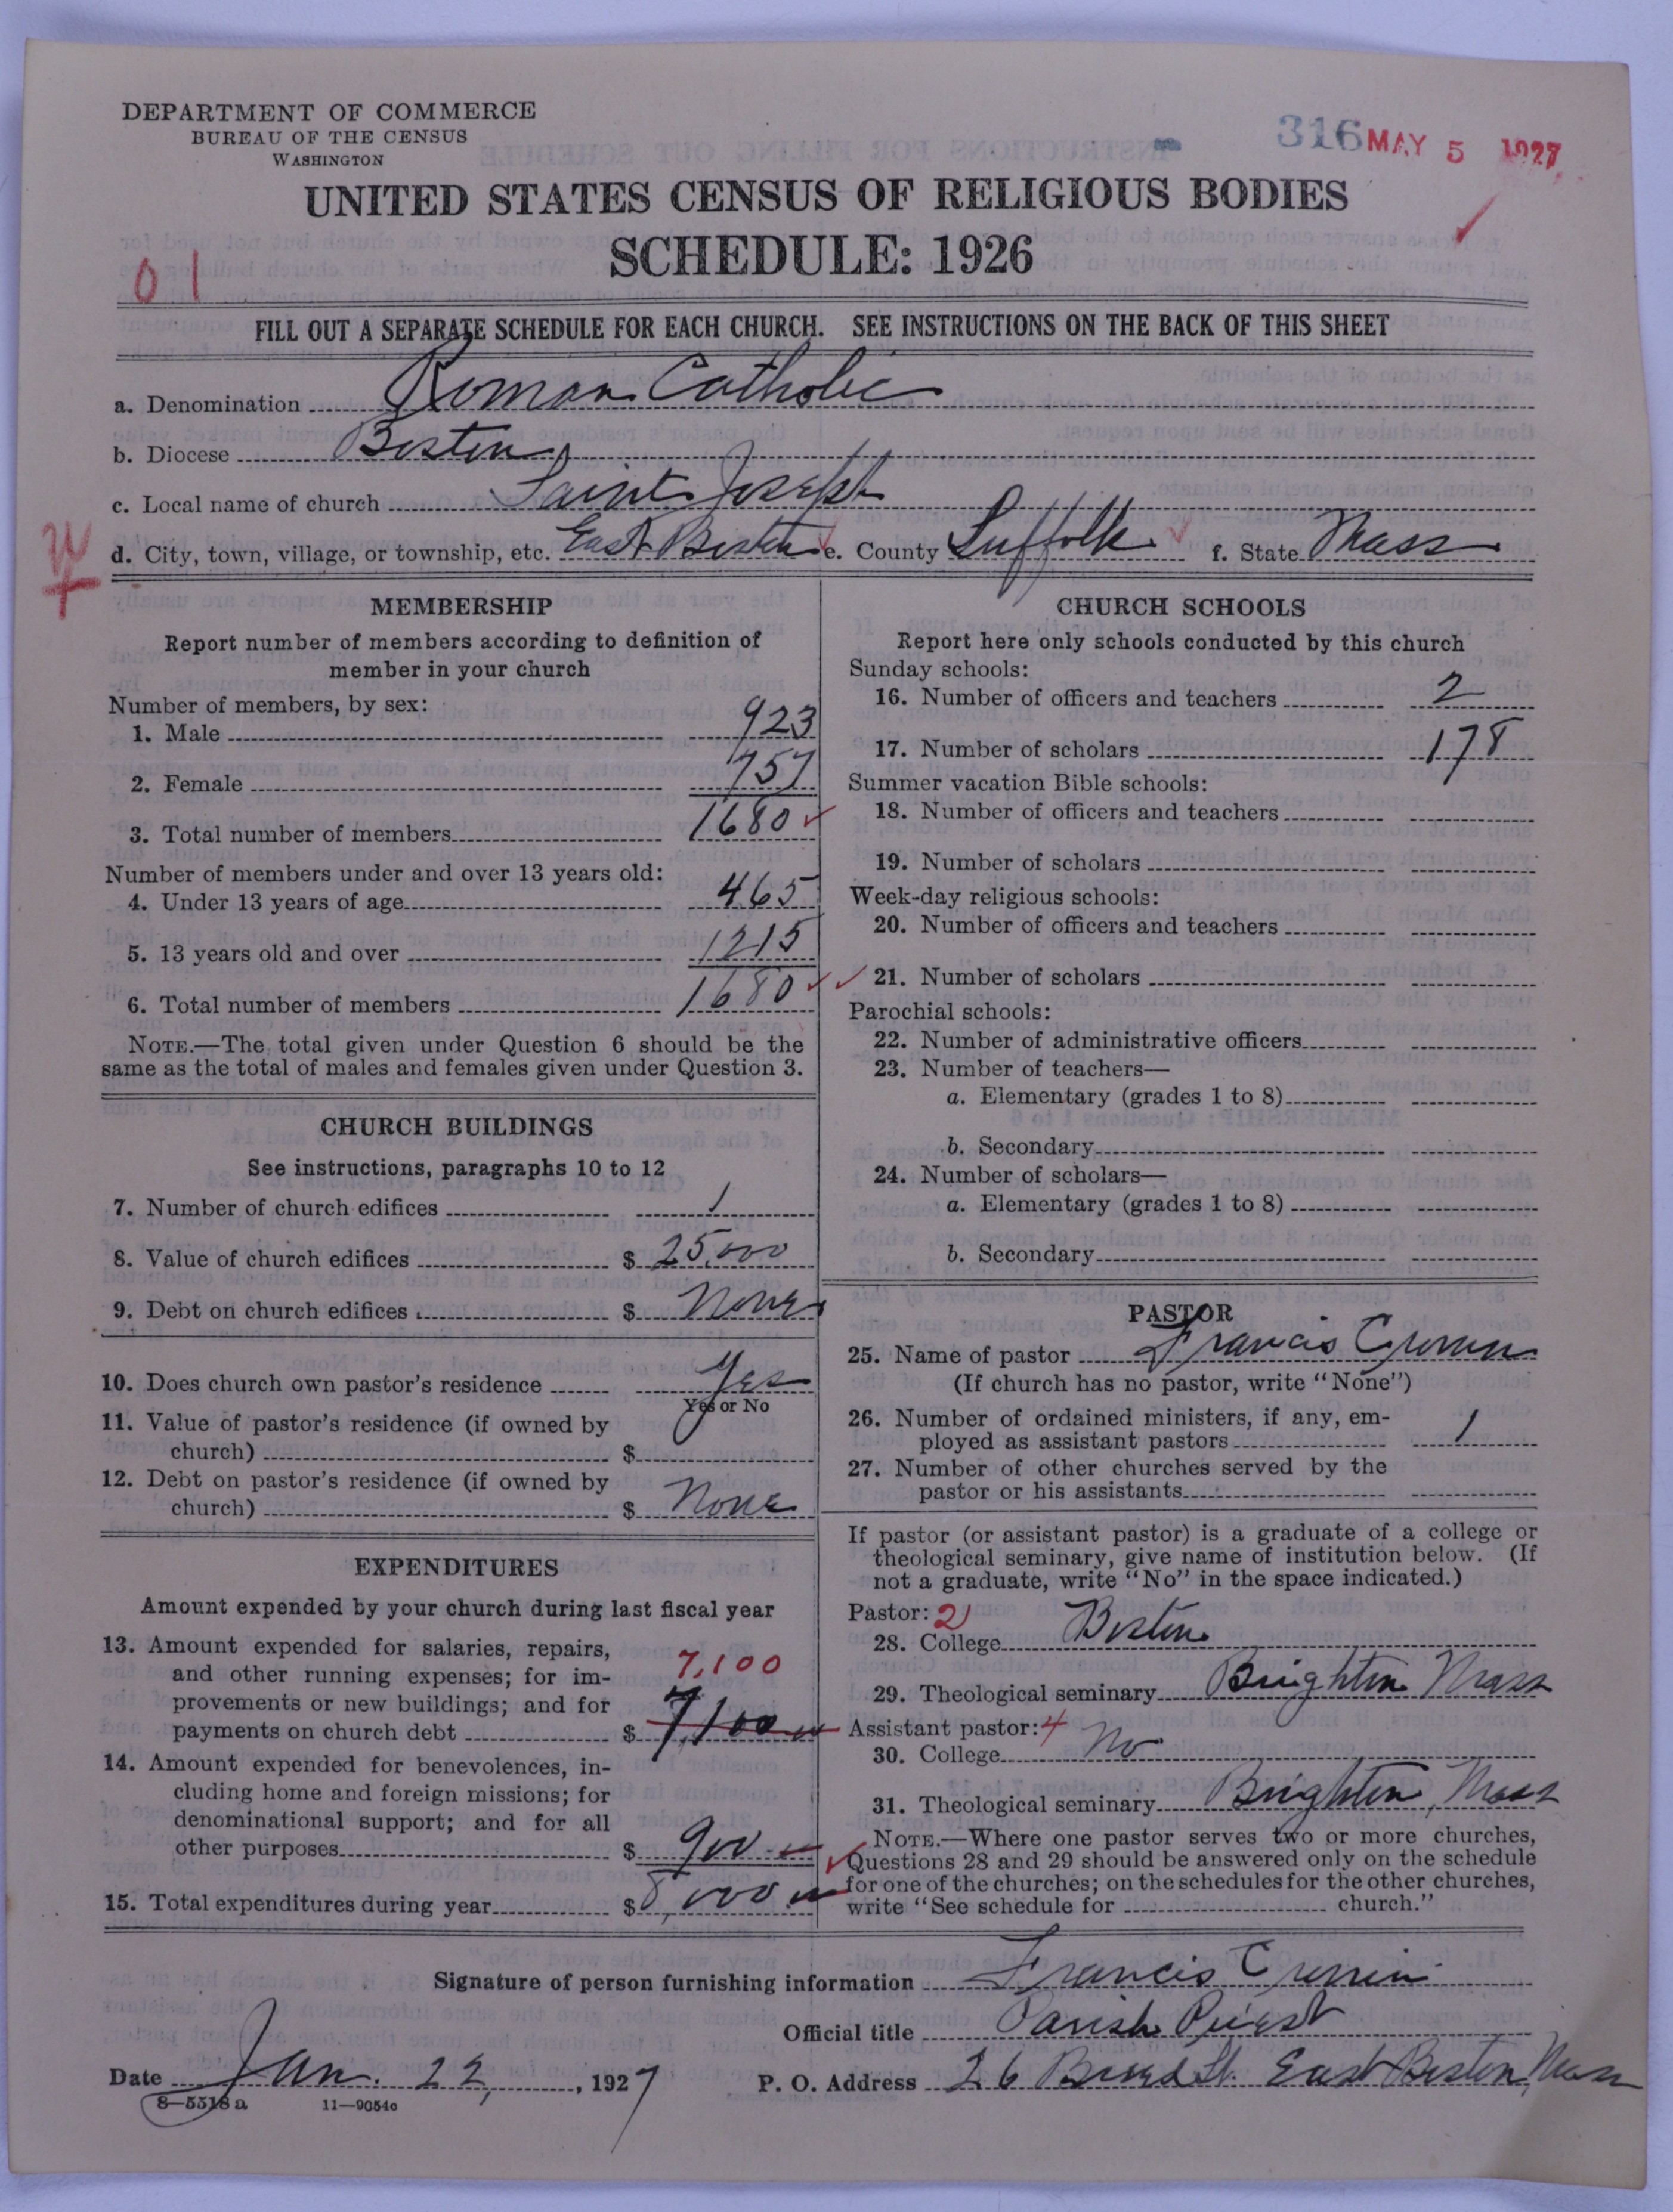 DEPARTMENT OF COMMERCE
BUREAU OF THE CENSUS
WASHINGTON
316 MAY 5 1927
UNITED STATES CENSUS OF RELIGIOUS BODIES
SCHEDULE: 1926
01
FILL OUT A SEPARATE SCHEDULE FOR EACH CHURCH. SEE INSTRUCTIONS ON THE BACK OF THIS SHEET
a. Denomination Roman Catholic
b. Diocese Boston
c. Local name of church Saint Joseph
d. City, town, village, or township, etc. East Boston e. County Suffolk f. State Mass
MEMBERSHIP
Report number of members according to definition of
member in your church
Number of members, by sex:
1. Male 923
2. Female 757
3. Total number of members 1680
Number of members under and over 13 years old:
4. Under 13 years of age 465
5. 13 years old and over 1215
6. Total number of members 1680
NOTE.—The total given under Question 6 should be the
same as the total of males and females given under Question 3.
CHURCH BUILDINGS
See instructions, paragraphs 10 to 12
7. Number of church edifices 1
8. Value of church edifices $ 25,000
9. Debt on church edifices $ None
10. Does church own pastor's residence Yes
Yes or No
11. Value of pastor's residence (if owned by
church) $
12. Debt on pastor's residence (if owned by
church) $ None
EXPENDITURES
Amount expended by your church during last fiscal year
13. Amount expended for salaries, repairs,
and other running expenses; for im-
7,100
provements or new buildings; and for
payments on church debt $ 7,100
14. Amount expended for benevolences, in-
cluding home and foreign missions; for
denominational support; and for all
other purposes $ 900
15. Total expenditures during year $ 8,000
CHURCH SCHOOLS
Report here only schools conducted by this church
Sunday schools:
16. Number of officers and teachers 2
17. Number of scholars 178
Summer vacation Bible schools:
18. Number of officers and teachers
19. Number of scholars
Week-day religious schools:
20. Number of officers and teachers
21. Number of scholars
Parochial schools:
22. Number of administrative officers
23. Number of teachers—
a. Elementary (grades 1 to 8)
b. Secondary
24. Number of scholars—
a. Elementary (grades 1 to 8)
b. Secondary
PASTOR
25. Name of pastor Francis Cronin
(If church has no pastor, write "None")
26. Number of ordained ministers, if any, em-
ployed as assistant pastors 1
27. Number of other churches served by the
pastor or his assistants
If pastor (or assistant pastor) is a graduate of a college or
theological seminary, give name of institution below. (If
not a graduate, write "No" in the space indicated.)
Pastor: 2
28. College Boston
29. Theological seminary Brighton Mass
Assistant pastor: 4
30. College No
31. Theological seminary Brighton, Mass
NOTE.—Where one pastor serves two or more churches,
Questions 28 and 29 should be answered only on the schedule
for one of the churches; on the schedules for the other churches,
write "See schedule for church."
Signature of person furnishing information Francis Cronin
Official title Parish Priest
Date Jan. 22, 1927 P. O. Address 26 St. East Boston, Mass
8-5518a 11-9054c